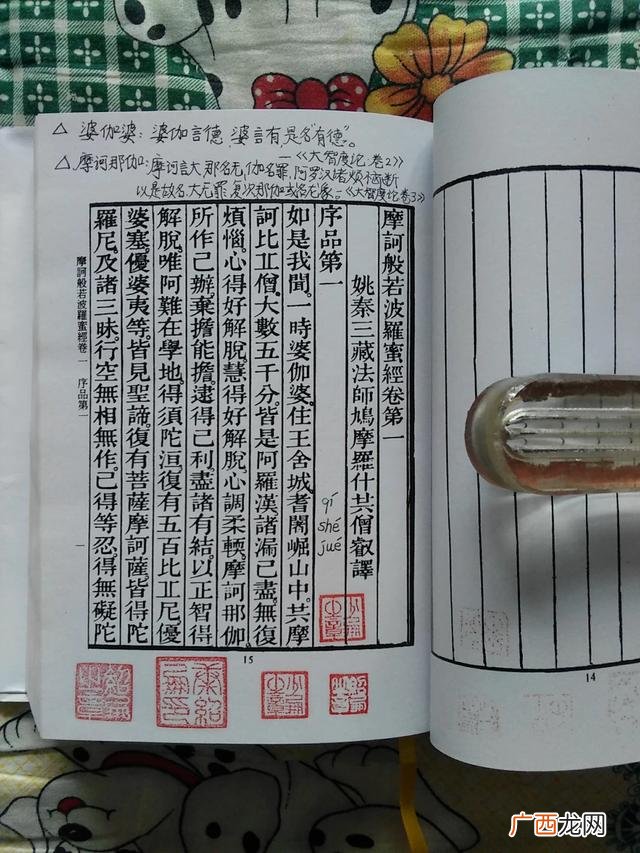 △ 婆伽婆：婆伽言德，婆言有，是名“有德”。
—《大智度论卷2》
△ 摩訶那伽：摩诃言大，那名无，伽名罪，阿罗汉诸烦恼断
以是故名大无罪 复次那伽或名龙象。《大智度论卷3》
摩訶般若波羅蜜經卷第一
姚秦三藏法師鳩摩羅什共僧叡譯
序品第一
如是我聞。一時婆伽婆。住王舍城耆闍崛山中。共摩
qí
shé
jué
訶比丘僧。大數五千分。皆是阿羅漢。諸漏已盡。無復
煩惱。心得好解脫。慧得好解脫。心調柔輭。摩訶那伽
所作已辦。棄擔能擔。逮得己利。盡諸有結。以正智得
解脫。唯阿難在學地。得須陀洹。復有五百比丘尼。優
婆塞。優婆夷等。皆見聖諦。復有菩薩摩訶薩。皆得陀
羅尼。及諸三昧。行空無相無作。已得等忍。得無礙陀
摩訶般若波羅蜜經卷一 序品第一
一
15
14
广西龙网